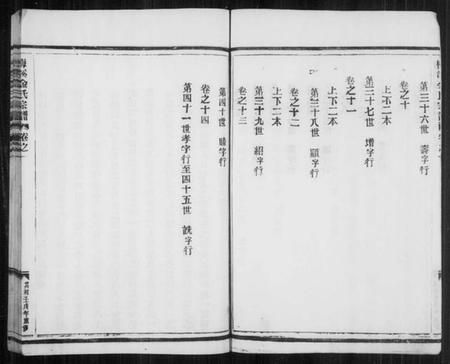 第三十六世 壽字行
卷之十
上下二本
第三十七世 增字行
卷之十一
上下二本
第三十八世 顯字行
卷之十二
上下二本
第三十九世 紹字行
卷之十三
第四十世 字行
卷之十四
第四十一世孝字行至四十五世 詵字行
梅溪金氏宗譜 卷之
年重修